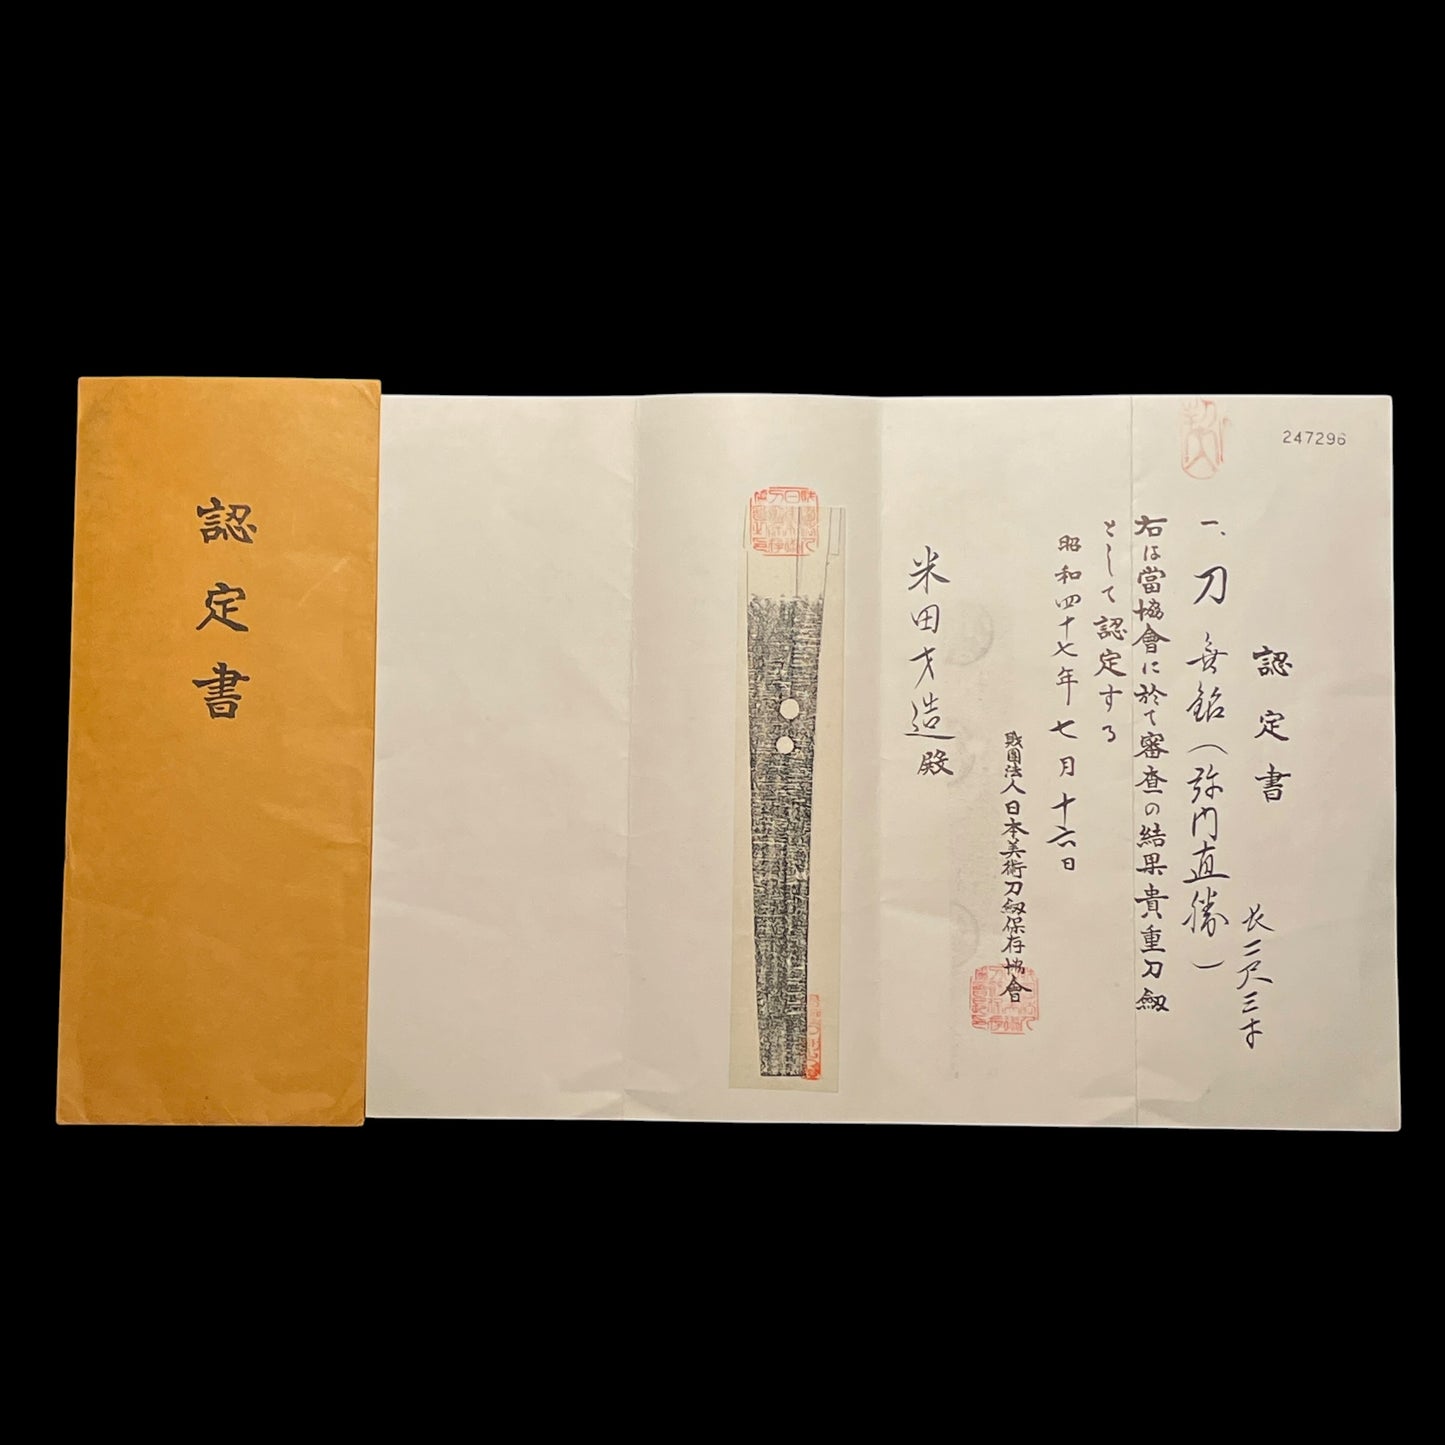 認定書
247296
認定書
一、刀 無銘(弥門直勝)
長二尺三寸
右は當協會に於て審査の結果貴重刀劔
として認定する
昭和四十七年七月十六日
財團法人日本美術刀劔保存協會
米田才造殿